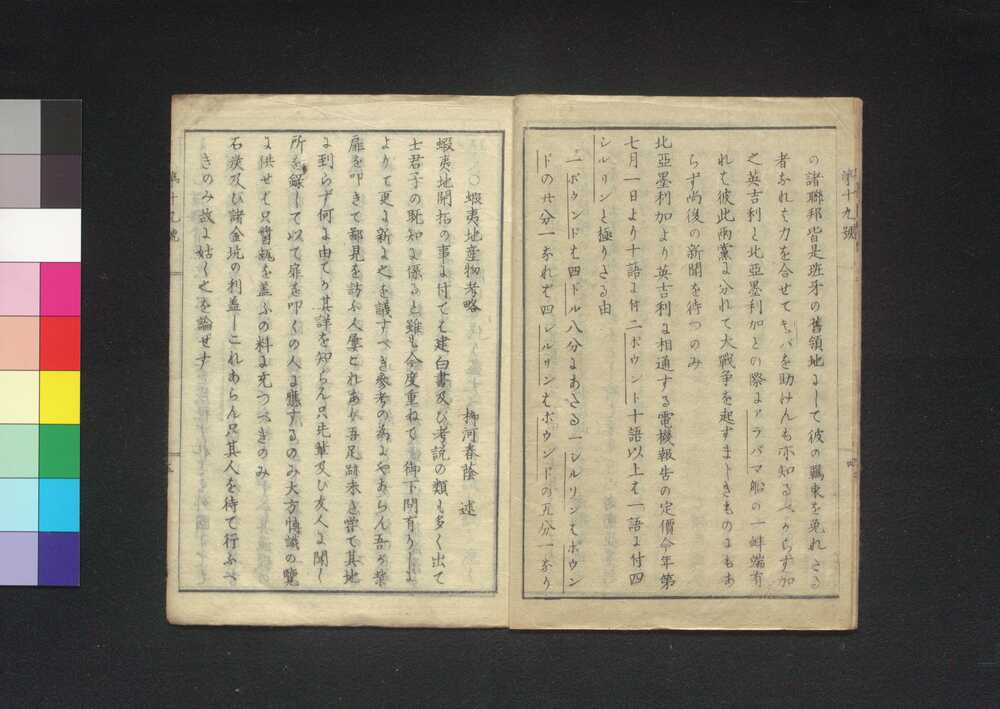 第十九號
の諸聯邦皆是班牙の舊領地にして彼の羈束を免れさる
者なれは力を合せてキュバを助けんも亦知るへからず加
之英吉利と北亞墨利加との際にアラバマ船の一衅端有
れは彼此両黨に分れて大戦争を起すましきものにもあ
らず尚後の新聞を待つのみ
北亞墨利加より英吉利に相通する電機報告の定價今年第
七月一日より十語に付二ポウンド十語以上は一語に付四
シルリンと極りたる由
一ポウンドは四ドル八分にあたる一シルリンはポウン
ドの廿分一なれは四シルリンはポウンドの五分一なり
四
○蝦夷地産物考略
柳河春蔭 述
蝦夷地開拓の事に付ては建白書及び考説の類も多く出て
士君子の恥知に係ると雖も今度重ねて 御下問有りしに
よりて更に新に之を議すべき参考の為にやあらん吾か柴
扉を叩きて鄙見を訪ふ人屢これあり吾足跡未き嘗て其地
に到らず何に由てか其詳を知らん只先輩及び友人に聞し
所を録して以て扉を叩くの人に應するのみ大方博識の覧
に供せば只醬瓿を蓋ふの料に充つべきのみ
石炭及び諸金坑の利益はこれあらん只其人を待て行ふべ
きのみ故に姑く之を論せす
第十九號